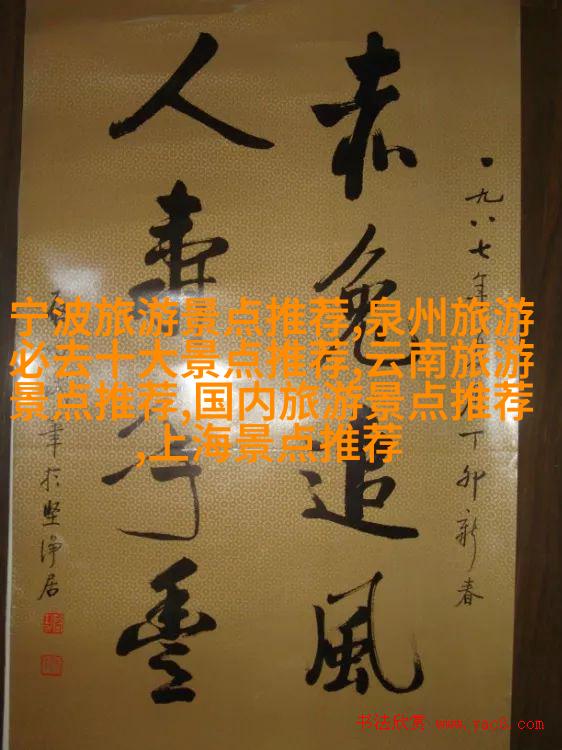 宁波旅游景点推荐,泉州旅游
必去十大景点推荐,云南旅游
景点推荐,国内旅游景点推荐
,上海景点推荐
一九八七年
丁卯新春
赤兔追風
人寿年豐
於坚净居
书法欣赏 www.yac8.com